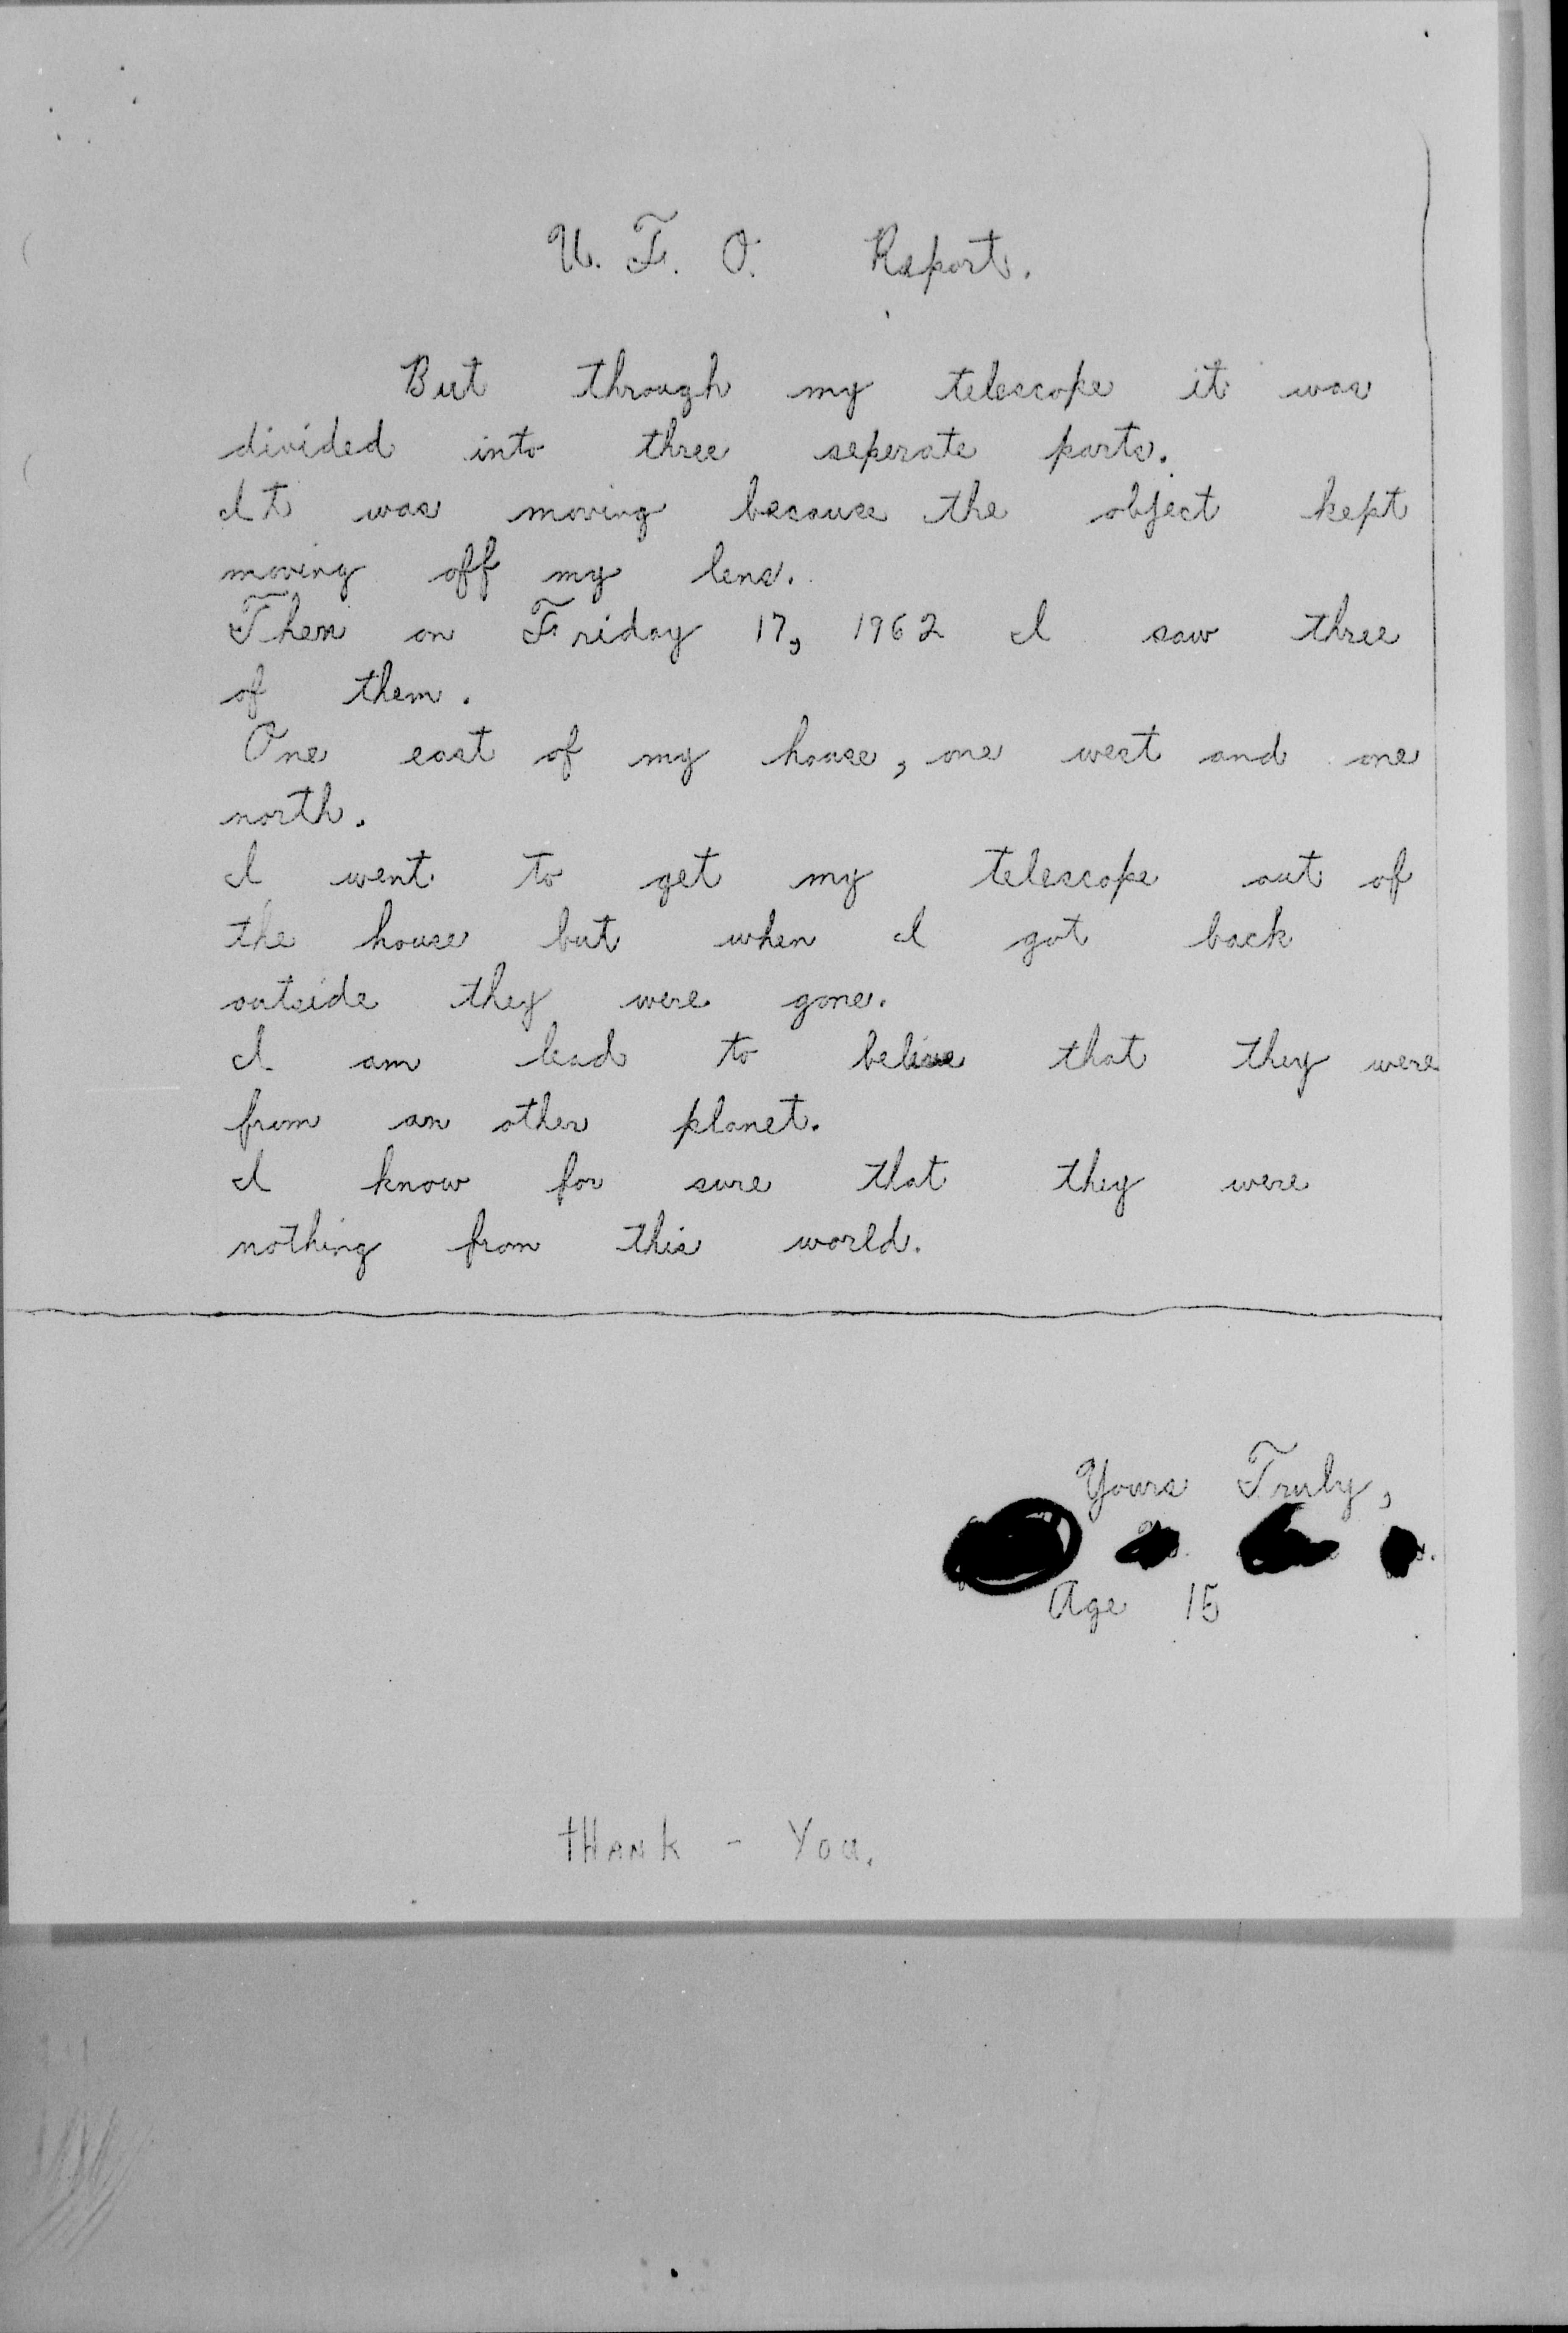 U. F. O. Report.
But through my telescope it was
divided into three seperate parts.
It was moving because the object kept
moving off my lens.
Then on Friday 17, 1962 I saw three
of them.
One east of my house, one west and one
north.
I went to get my telescope out of
the house but when I got back
outside they were gone.
I am lead to belive that they were
from an other planet.
I know for sure that they were
nothing from this world.
Yours Truly,
Age 15
tHANK - You.